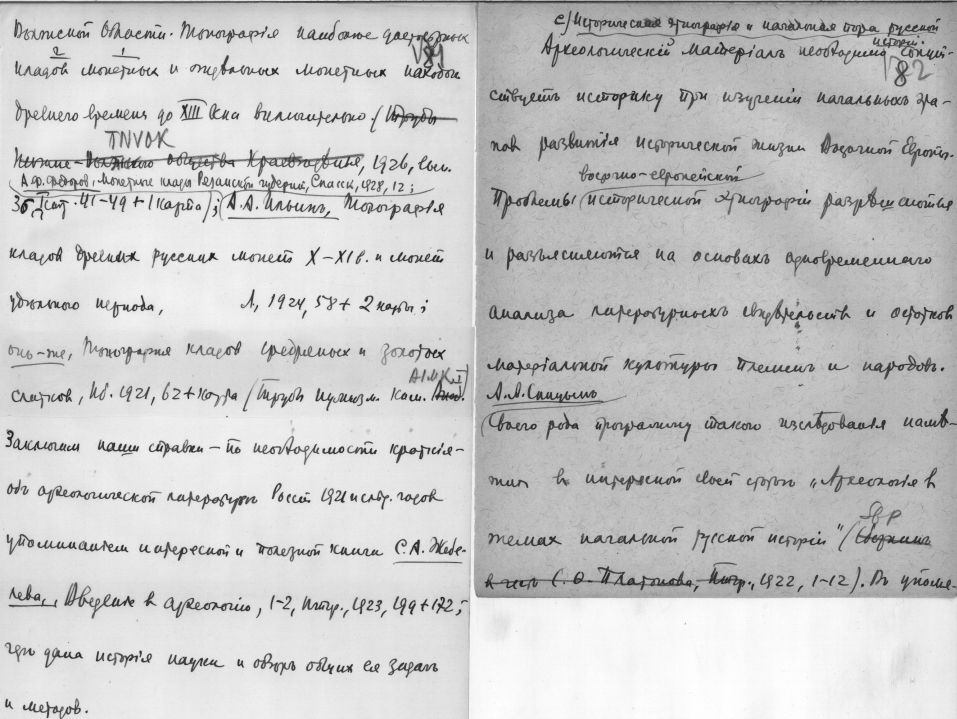 Волжской Области. Топографія наиболее
V81
2 1
кладов монетных и отдельных монетных находок
древнего времени до XIII века включительно (Труды
TNVOK
Нижне-Волжского общества Краеведенья, 1926, вып.
А. Ф. Федоров, Монетные клады Рязанской губерніи, Спасск, 1928, 12;
41-49 + 1 карта); А. А. Ильинъ, Топографія
кладов древних русских монет X-XI в. и монет
удельного периода, Л, 1924, 58 + 2 карты;
онъ-же, Топография кладов серебряных и золотых
AIMK I
слитков, Пб. 1921, 62 + карта (Труды нумизм. Ком.
Заключим наши справки – по необходимости краткія –
объ археологической литературе Россіи 1921 и след. годов
упоминанием интересной и полезной книги С. А. Жебе-
лева, Введение в археологію, 1-2, Птгр., 1923, 199 + 172;
где дана исторія науки и обзоръ общих ея задачъ
и методов.
c) Историческая этнографія и начальная пора русской
исторіи.
V82
Археологическій матеріалъ необходимо сопут-
ствуетъ историку при изученіи начальныхъ эта-
пов развитія исторической жизни Восточной Европы.
восточно-европейской
Проблемы исторической этнографіи разрешаются
и разъясняются на основахъ одновременного
анализа литературныхъ свидетельств и остатков
матеріальной культуры племен и народов.
А. А. Спицынъ
Своего рода программу такого изследованія наме-
тил в интересной своей статье „Археологія в
SbP
темах начальной русской исторіи" (Сборникъ
в честь С. Ѳ. Платонова, Птгр., 1922, 1-12). Въ упомя-